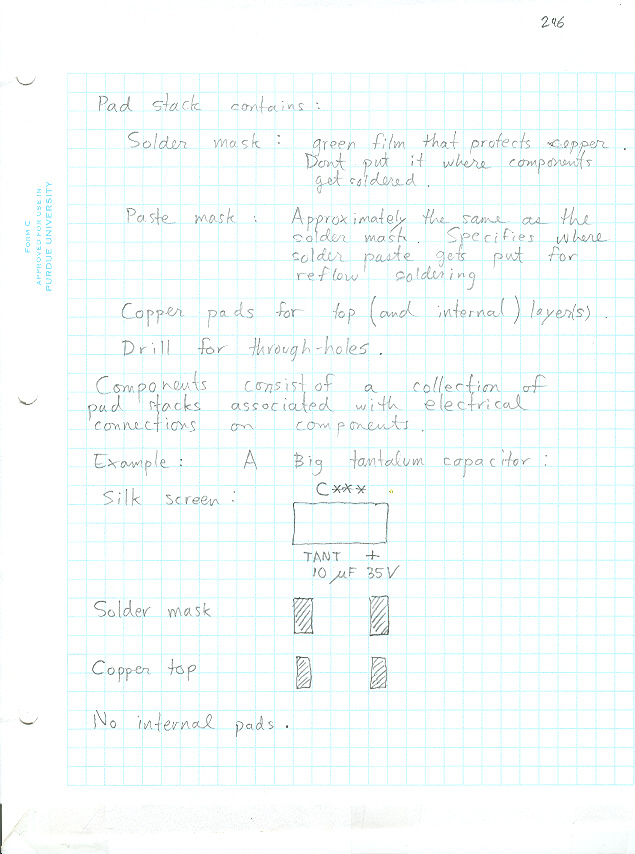 246
FORM C
APPROVED FOR USE IN
PURDUE UNIVERSITY
Pad stack contains:
Solder mask: green film that protects copper.
Dont put it where components
get soldered.
Paste mask: Approximately the same as the
solder mask. Specifies where
solder paste gets put for
reflow soldering
Copper pads for top (and internal) layer(s).
Drill for through-holes.
Components consist of a collection of
pad stacks associated with electrical
connections on components.
Example: A Big tantalum capacitor:
Silk screen: C***
TANT +
10 µF 35V
Solder mask
Copper top
No internal pads.